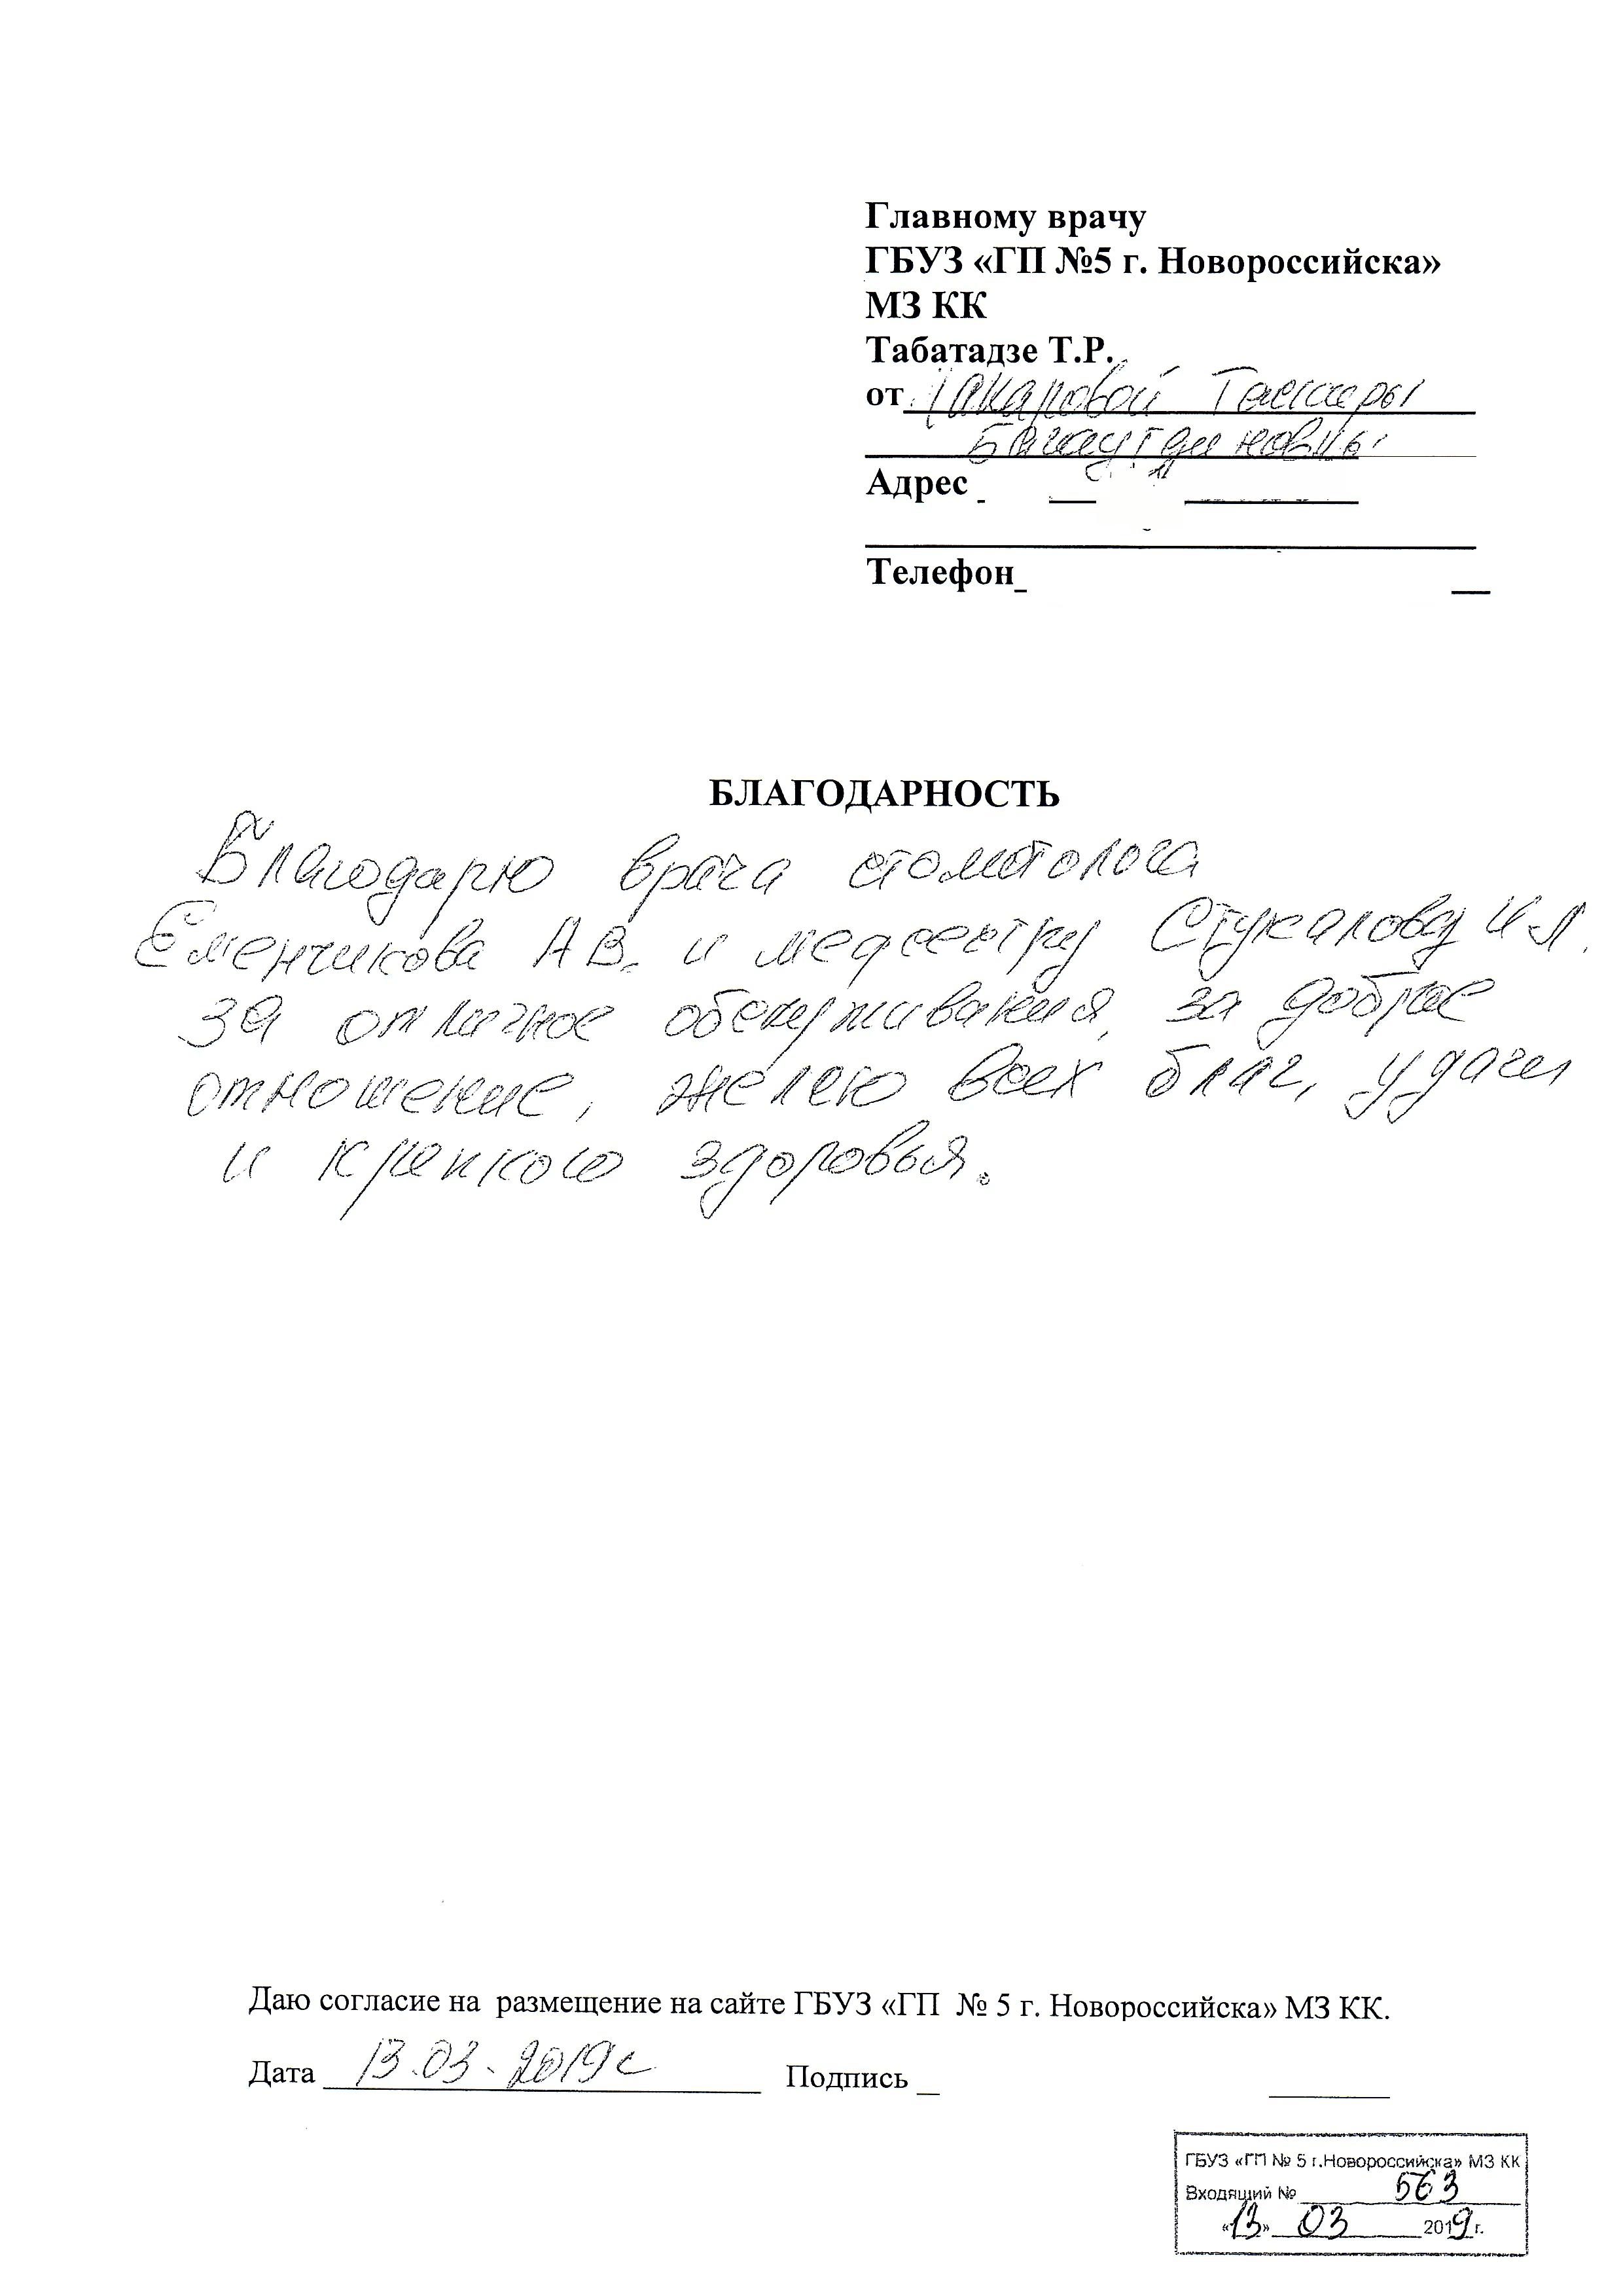 Главному врачу
ГБУЗ «ГП №5 г. Новороссийска»
МЗ КК
Табатадзе Т.Р.
от
Адрес
Телефон
БЛАГОДАРНОСТЬ
Благодарю врача стоматолога
Еменчикова А В. и медсестру Стукалову И Л.
за отличное обслуживания, за доброе
отношение, желею всех благ, удачи
и крепкого здоровья.
Даю согласие на размещение на сайте ГБУЗ «ГП № 5 г. Новороссийска» МЗ КК.
Дата 13.03.2019г Подпись
ГБУЗ «ГП № 5 г.Новороссийска» МЗ КК
Входящий № 563
«13» 03 2019г.